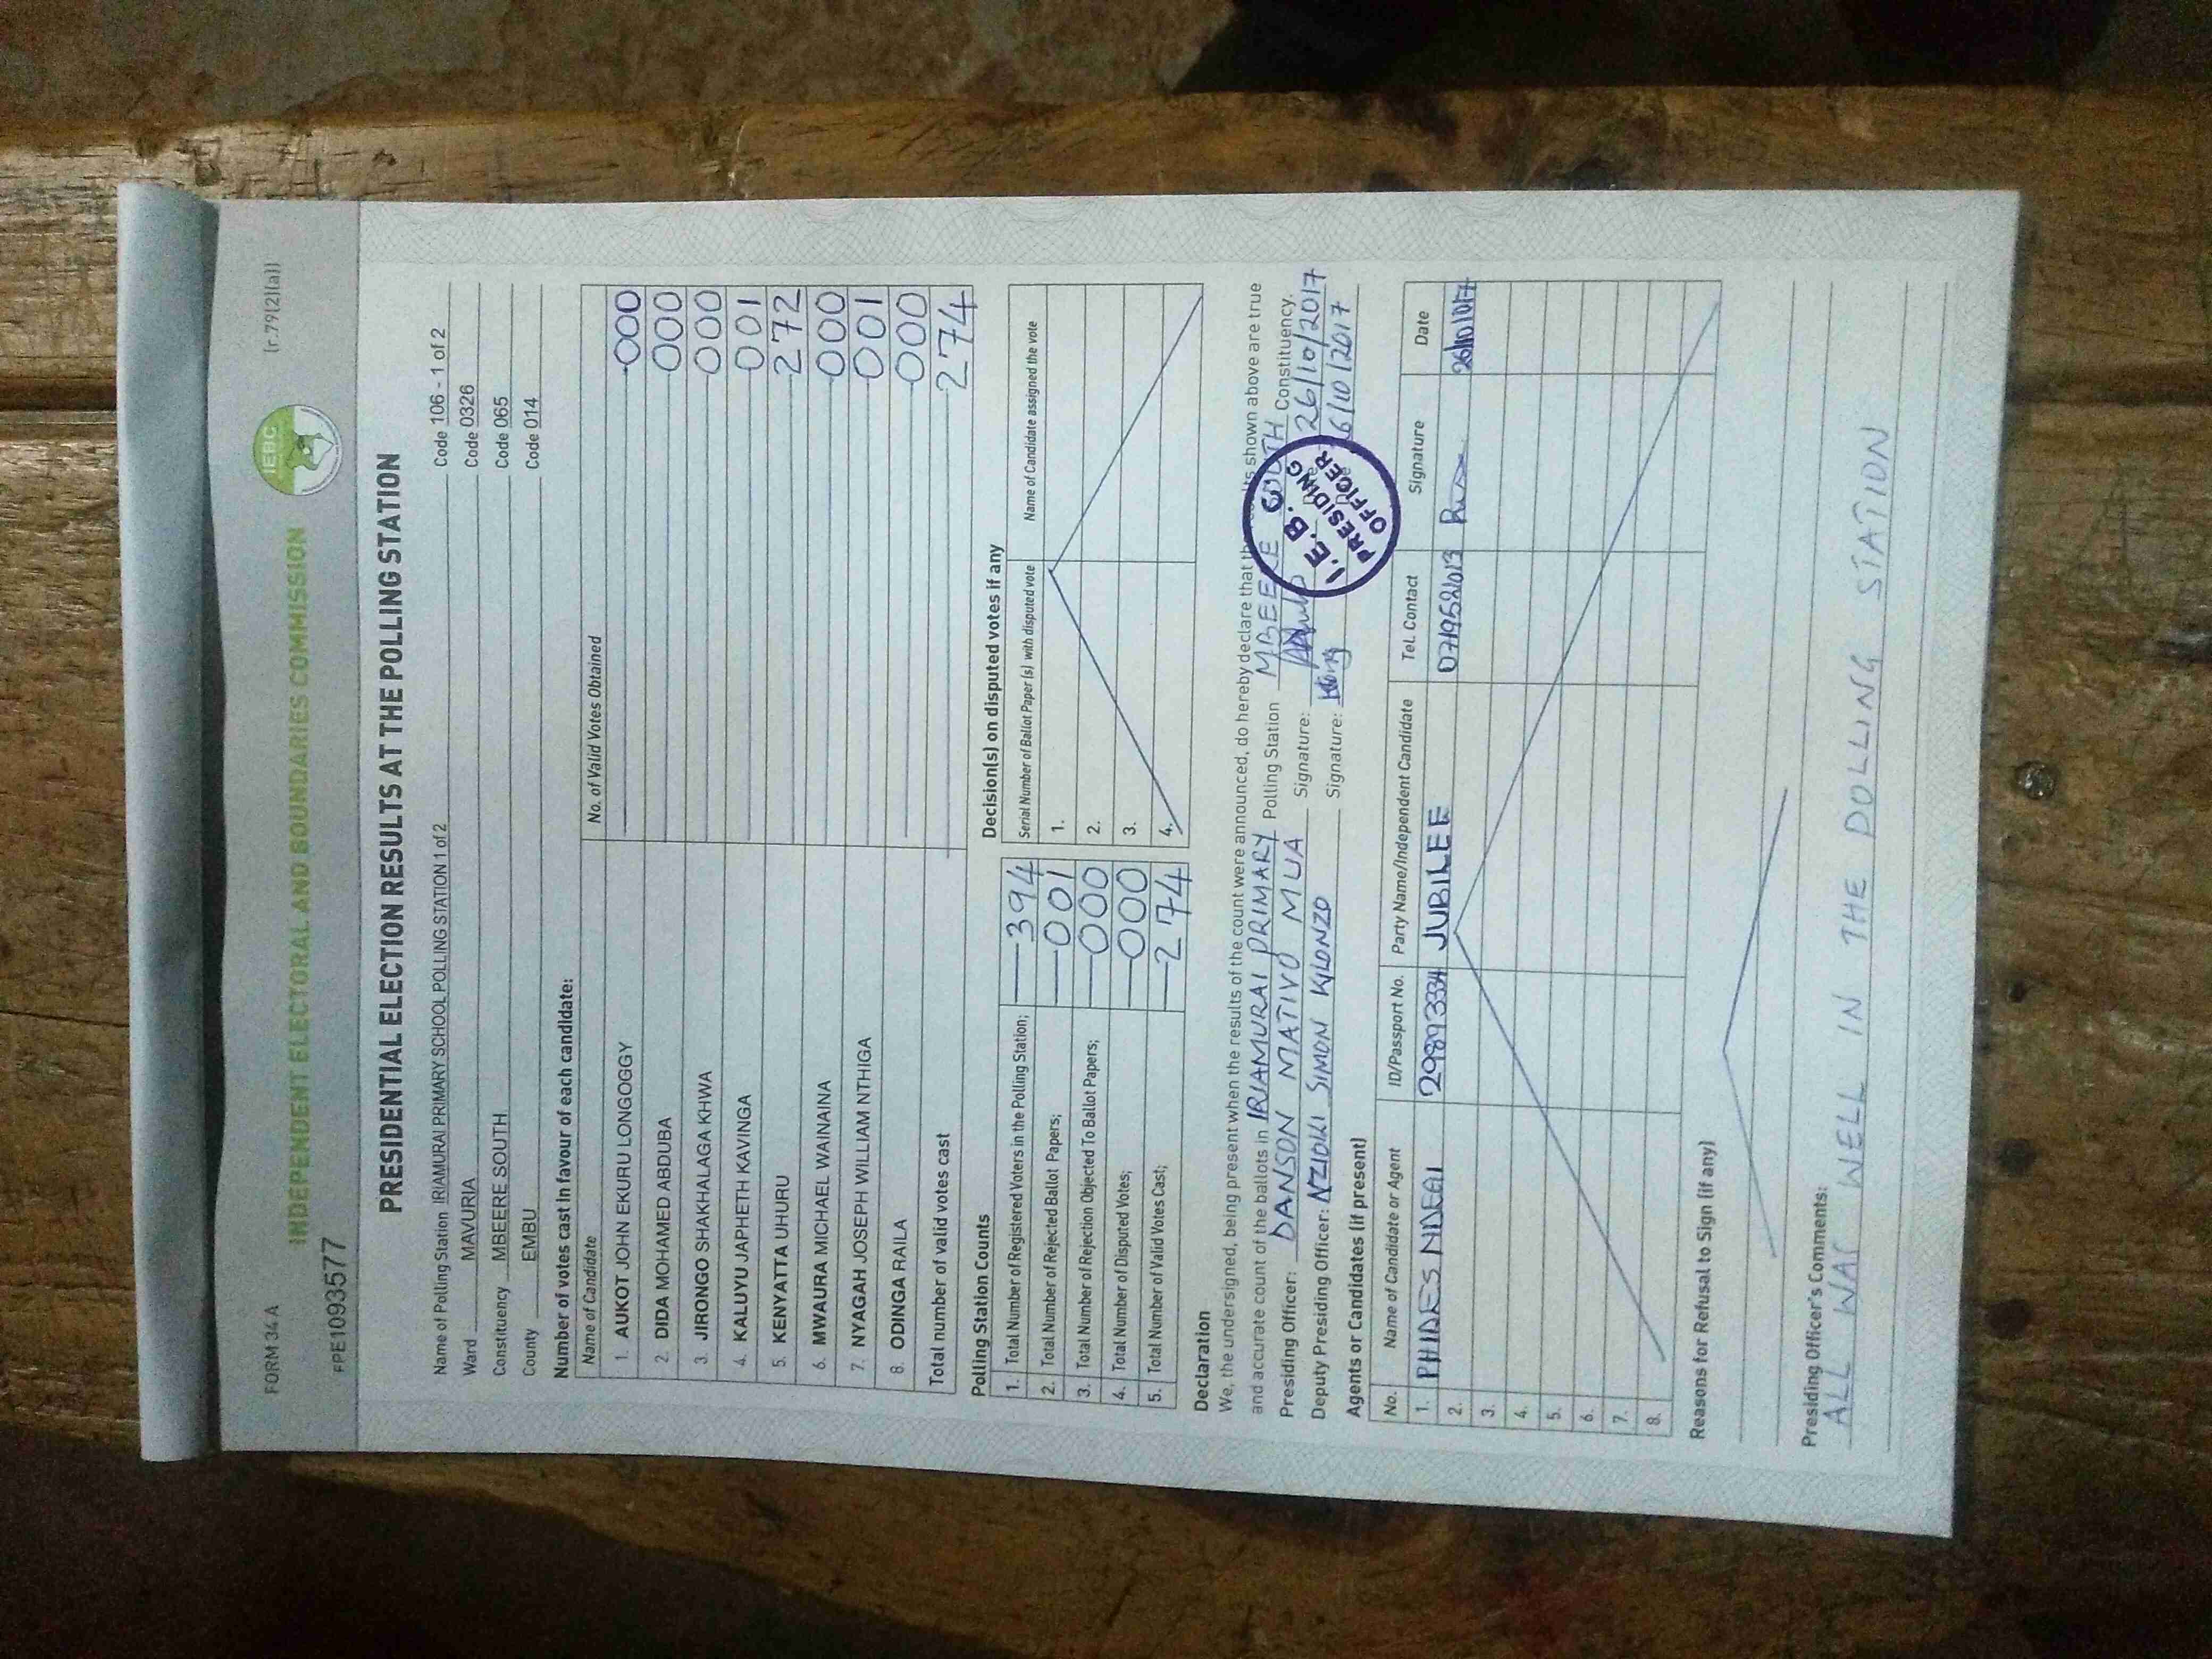 FORM 34 A
(r.79(2)(a))
INDEPENDENT ELECTORAL AND BOUNDARIES COMMISSION
IEBC
FPE1093577
PRESIDENTIAL ELECTION RESULTS AT THE POLLING STATION
Name of Polling Station IRIAMURAI PRIMARY SCHOOL POLLING STATION 1 of 2 Code 106 - 1 of 2
Ward MAVURIA Code 0326
Constituency MBEERE SOUTH Code 065
County EMBU Code 014
Number of votes cast in favour of each candidate:
Name of Candidate No. of Valid Votes Obtained
1. AUKOT JOHN EKURU LONGOGGY 000
2. DIDA MOHAMED ABDUBA 000
3. JIRONGO SHAKHALAGA KHWA 000
4. KALUYU JAPHETH KAVINGA 001
5. KENYATTA UHURU 272
6. MWAURA MICHAEL WAINAINA 000
7. NYAGAH JOSEPH WILLIAM NTHIGA 001
8. ODINGA RAILA 000
Total number of valid votes cast 274
Polling Station Counts
1. Total Number of Registered Voters in the Polling Station; 394
2. Total Number of Rejected Ballot Papers; 001
3. Total Number of Rejection Objected To Ballot Papers; 000
4. Total Number of Disputed Votes; 000
5. Total Number of Valid Votes Cast; 274
Decision(s) on disputed votes if any
Serial Number of Ballot Paper (s) with disputed vote Name of Candidate assigned the vote
1.
2.
3.
4.
Declaration
We, the undersigned, being present when the results of the count were announced, do hereby declare that the shown above are true
and accurate count of the ballots in IRIAMURAI PRIMARY Polling Station MBEERE SOUTH Constituency.
Presiding Officer: DANSON MATIVO MUA Signature: 26/10/2017
Deputy Presiding Officer: NZIOKI SIMON KILONZO Signature: 6/10/2017
I.E.B.C
PRESIDING
OFFICER
Agents or Candidates (if present)
No. Name of Candidate or Agent ID/Passport No. Party Name/Independent Candidate Tel. Contact Signature Date
1. PHIDES 29893334 JUBILEE 0719521013
2.
3.
4.
5.
6.
7.
8.
Reasons for Refusal to Sign (if any)
Presiding Officer's Comments:
ALL WAS WELL IN THE POLLING STATION